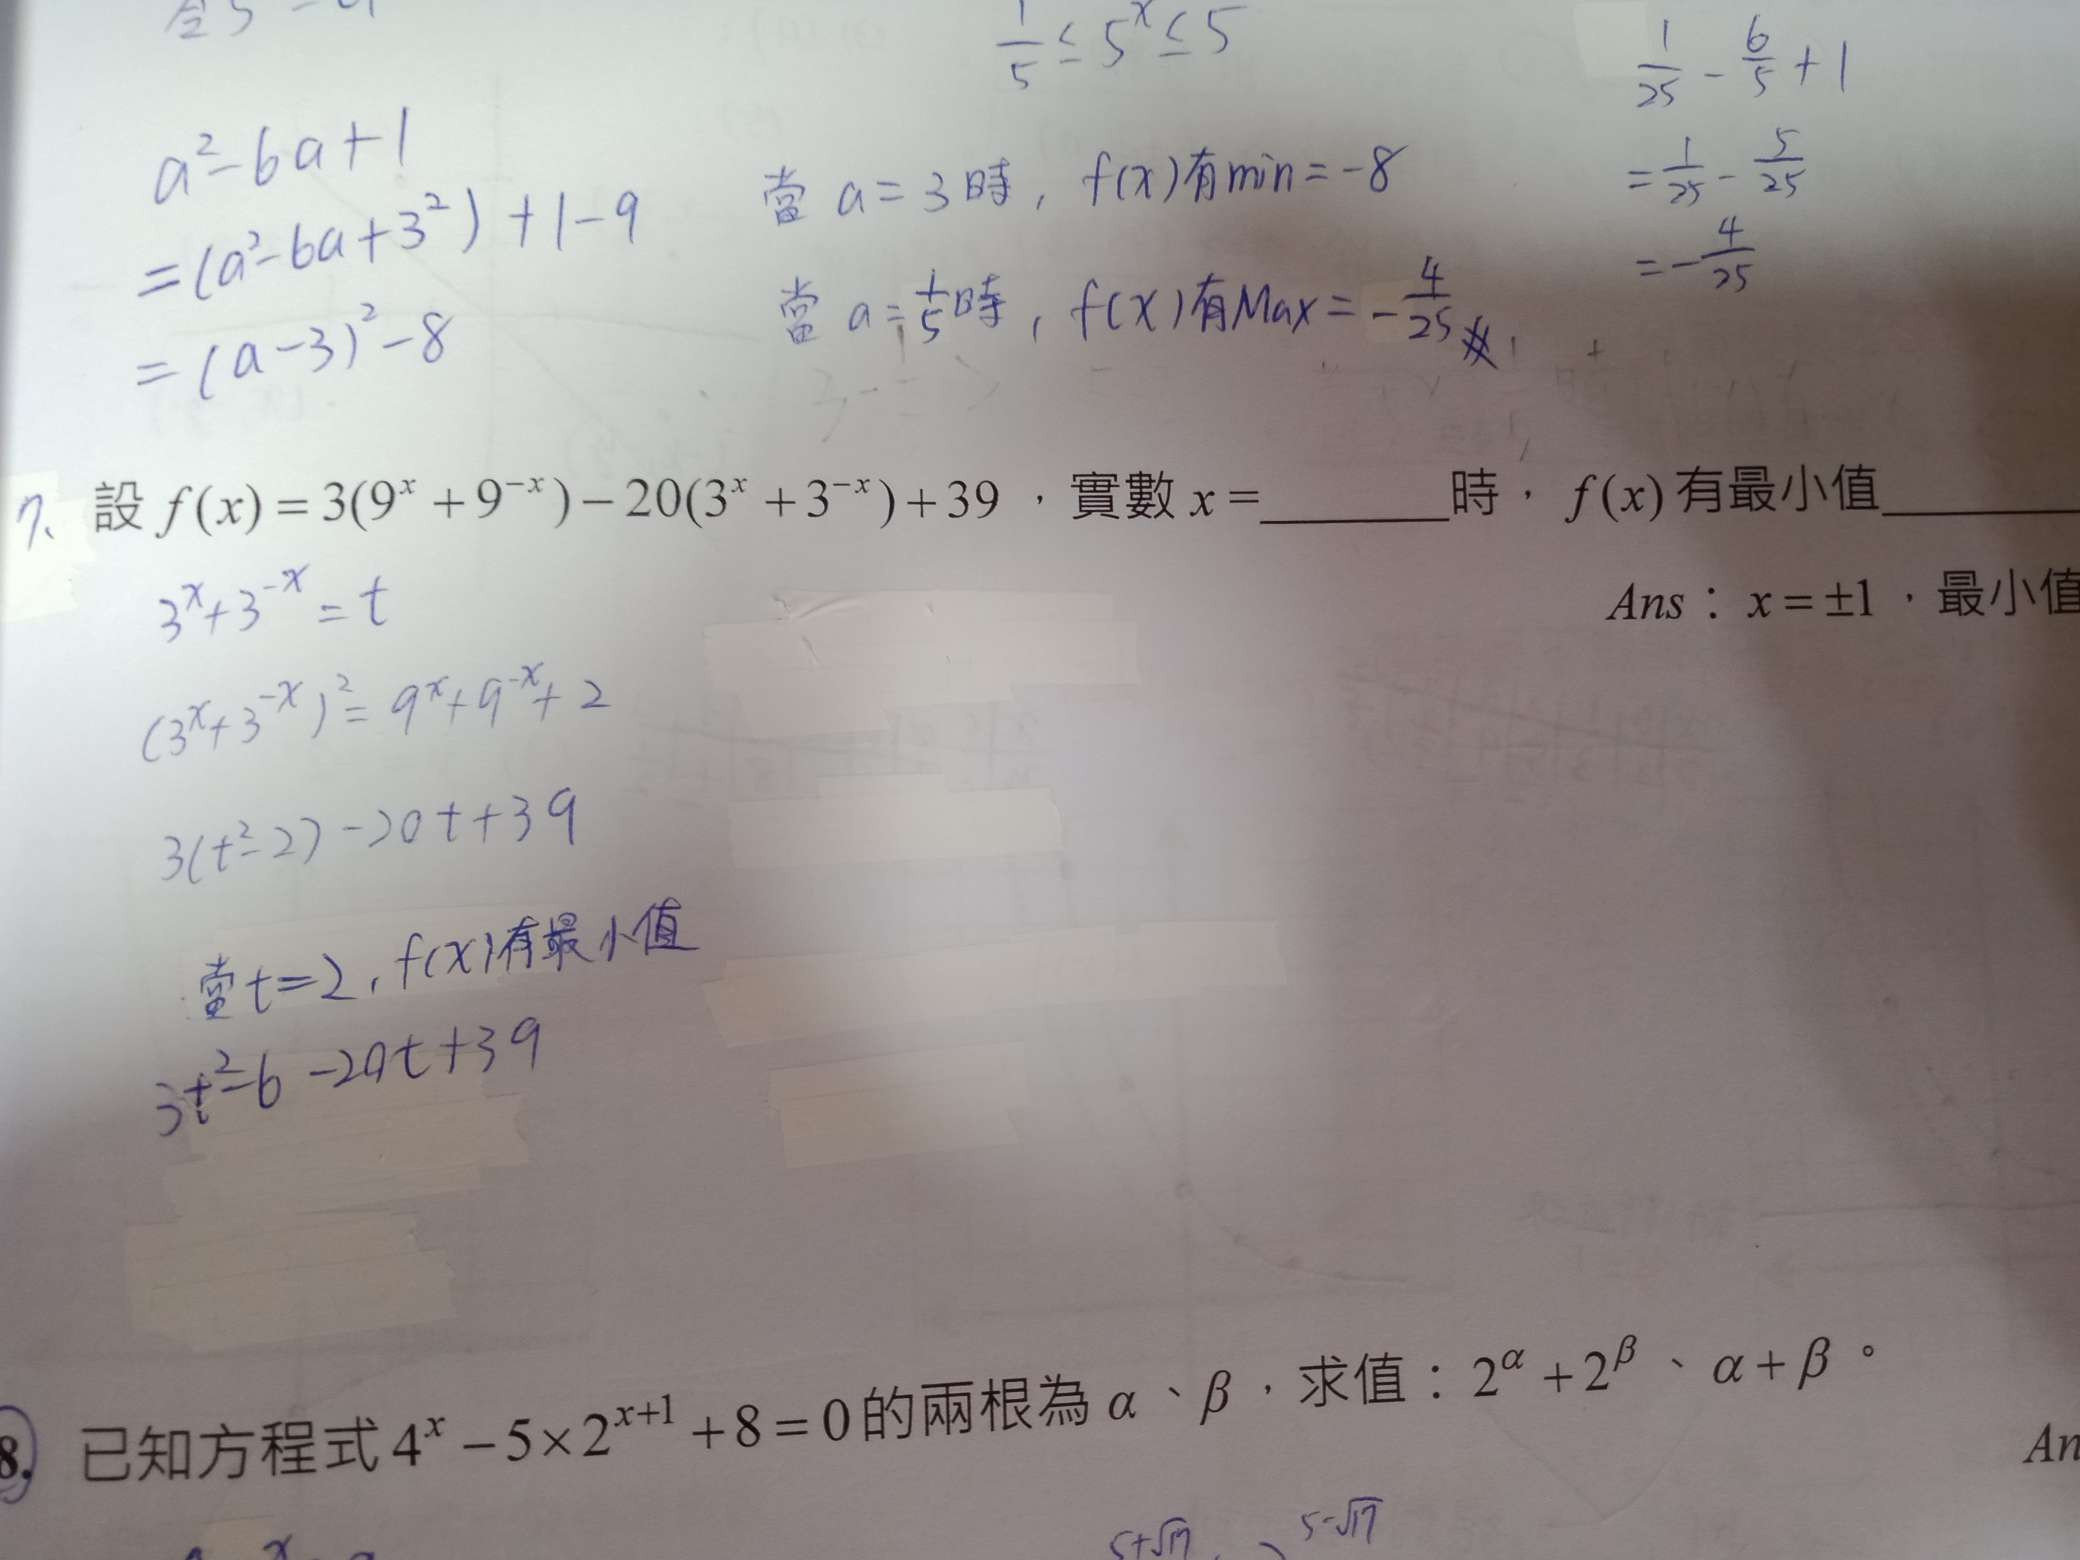 1/5 ≤ 5^x ≤ 5
1/25 - 6/5 + 1
= 1/25 - 5/25
= -4/25
a²-6a+1
=(a²-6a+3²)+1-9
=(a-3)²-8
當 a=3時, f(x)有min=-8
當 a=1/5時, f(x)有Max=-4/25
7. 設 f(x)=3(9^x+9^-x)-20(3^x+3^-x)+39,實數 x=______時,f(x)有最小值______
Ans:x=±1,最小值
3^x+3^-x=t
(3^x+3^-x)²=9^x+9^-x+2
3(t²-2)-20t+39
當t=2, f(x)有最小值
3t²-6-20t+39
8. 已知方程式 4^x-5×2^(x+1)+8=0 的兩根為 α、β,求值:2^α+2^β、α+β。
An
5+√17 5-√17